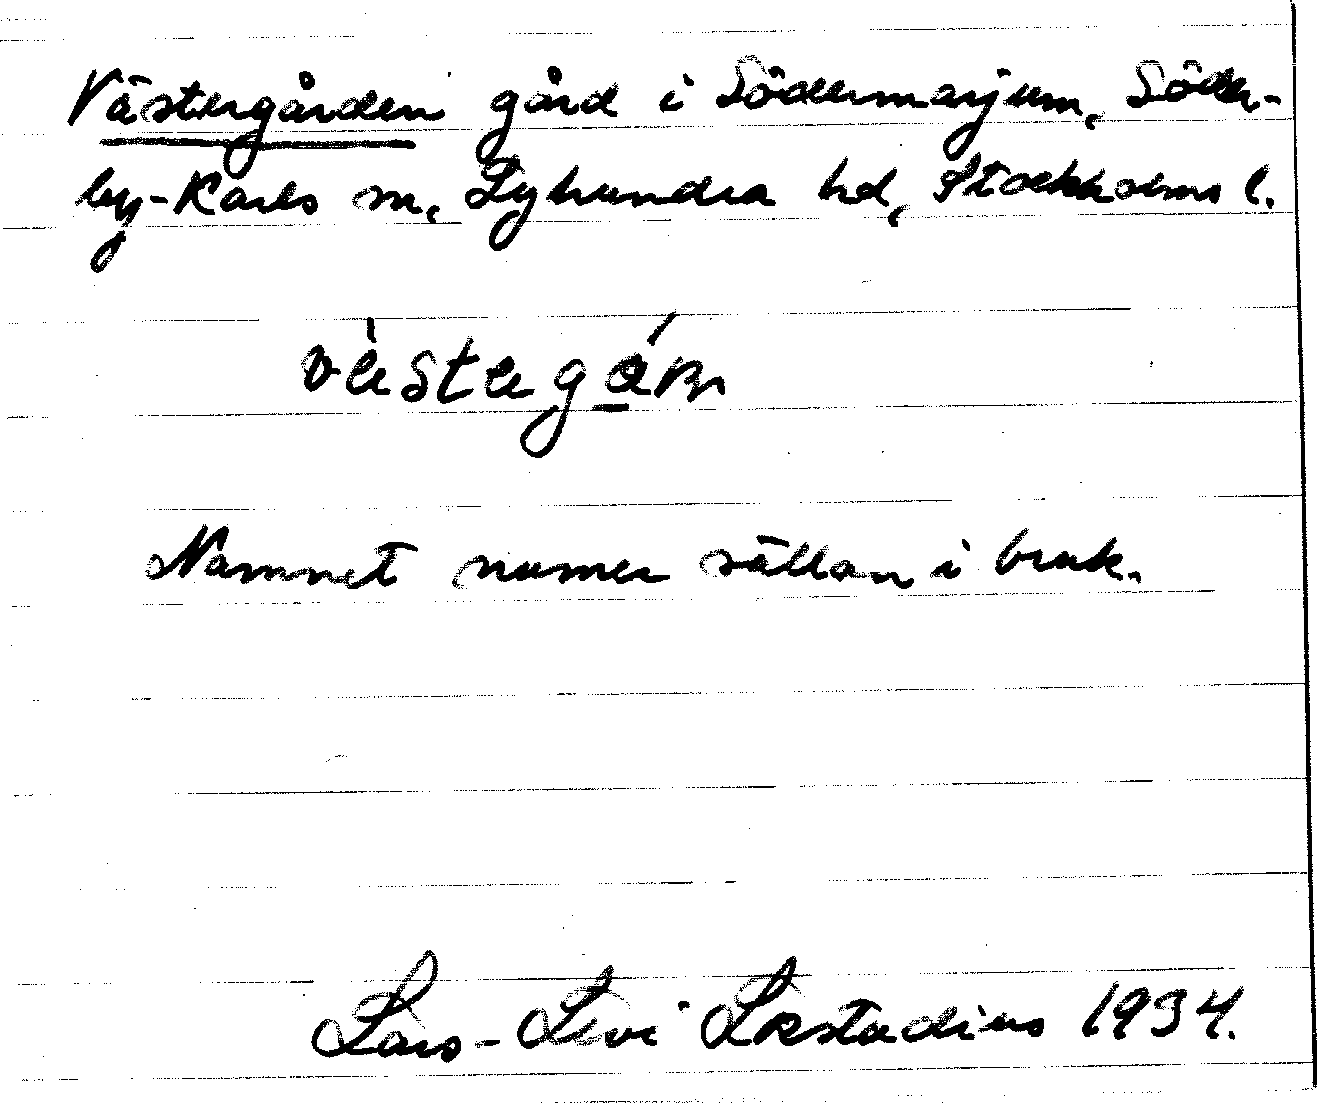 Västergården gård i Södermarjum, Söder-
by-Karls sn, Lyhundra hd, Stockholms l.
Namnet numer sällan i bruk.
Lars-Levi Læstadius 1934.